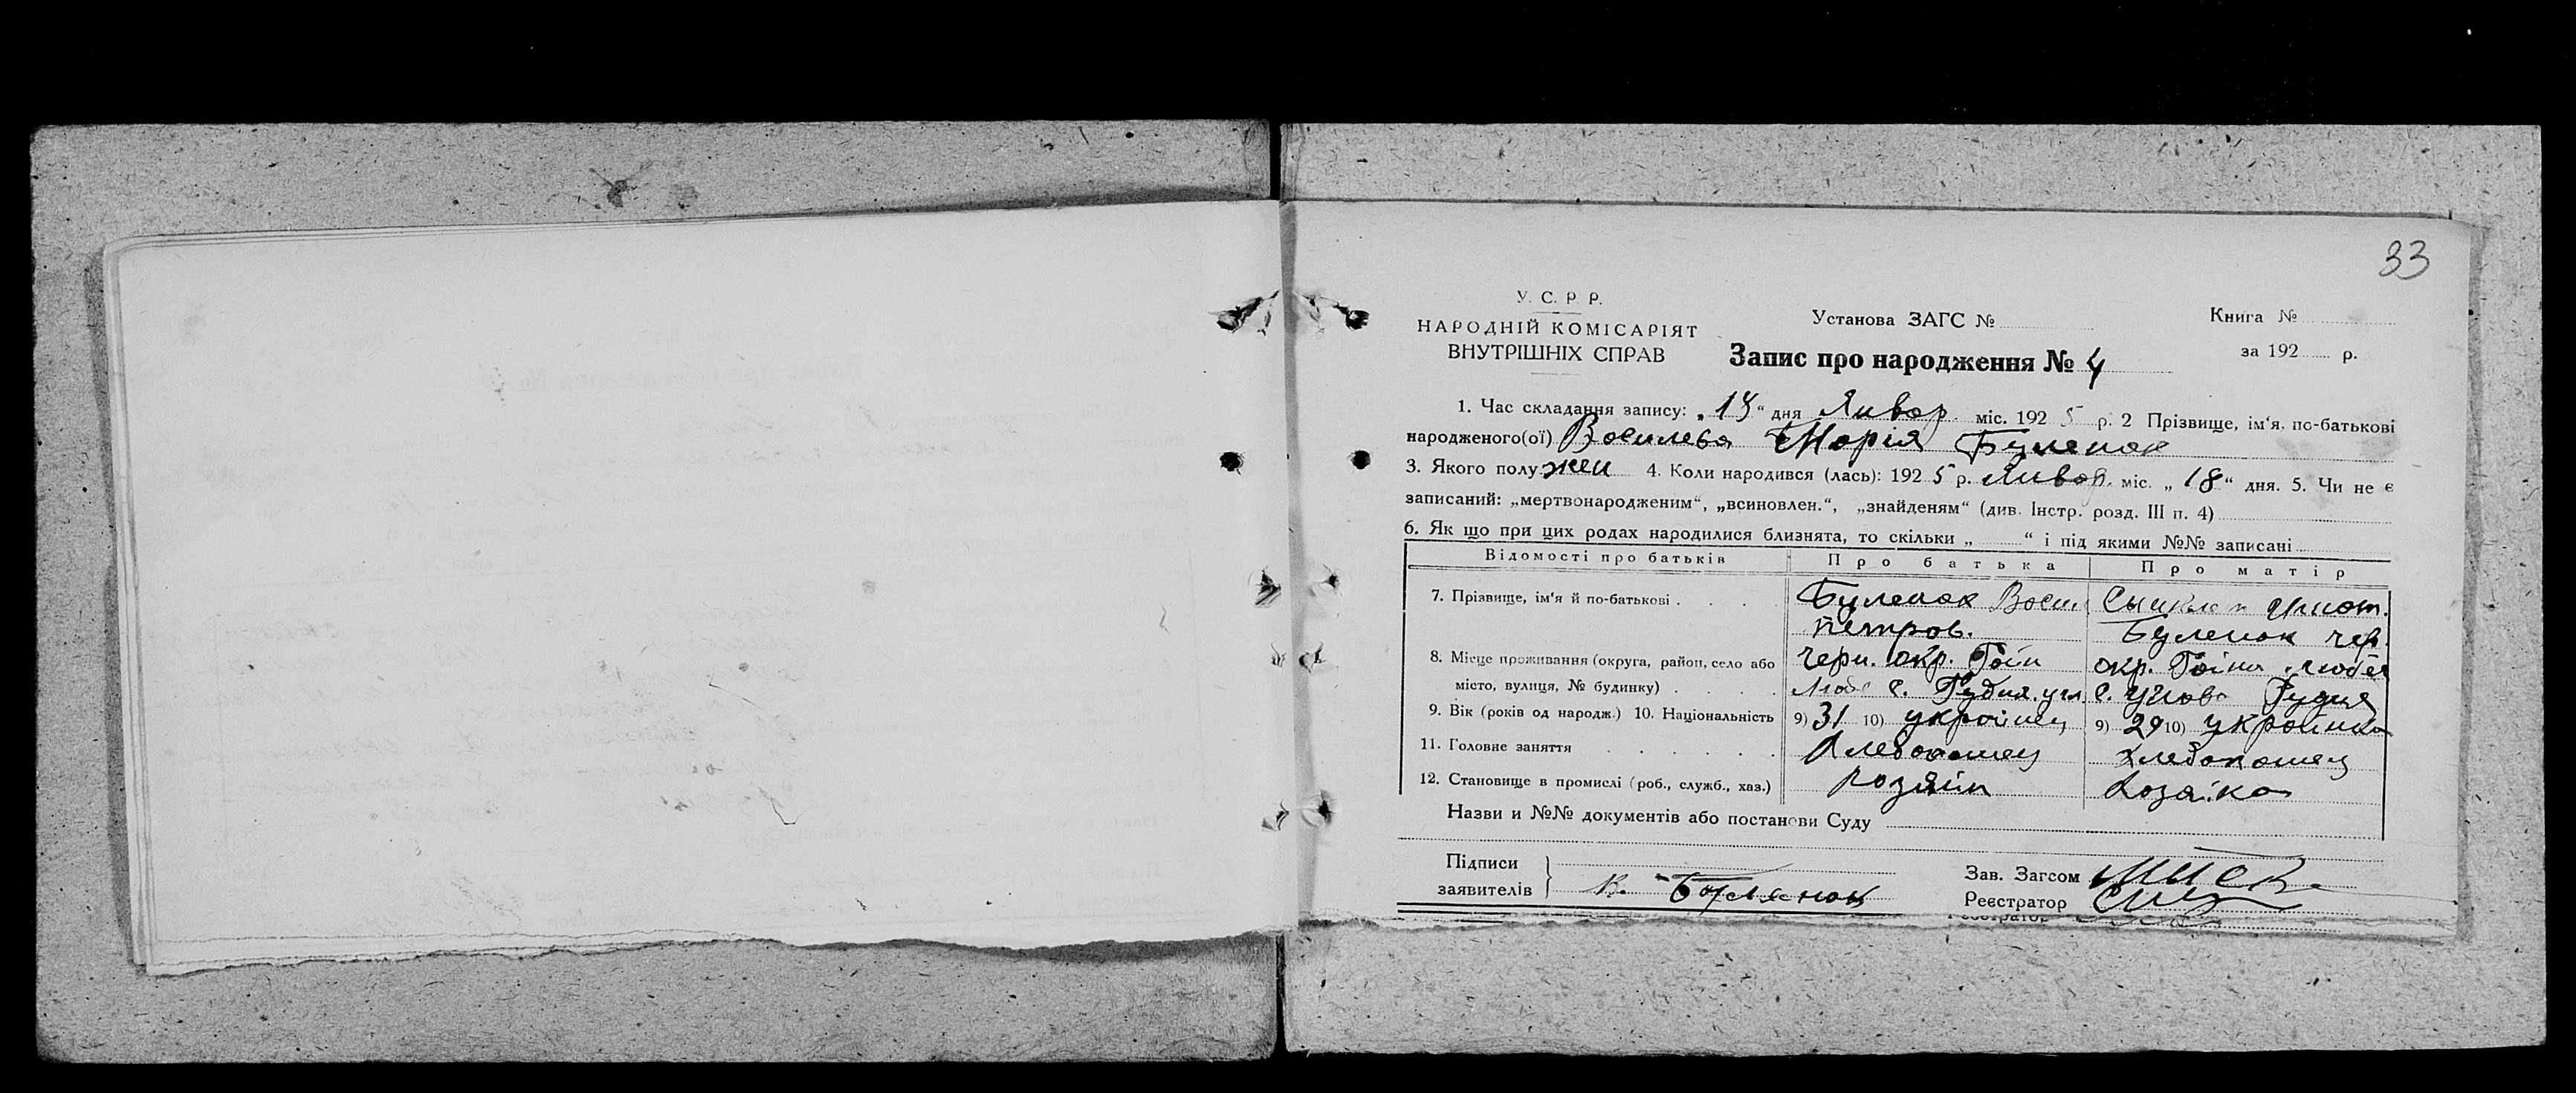 33
У. С. Р. Р.
НАРОДНІЙ КОМІСАРІЯТ
ВНУТРІШНІХ СПРАВ
Установа ЗАГС №
Книга №
за 192 р.
Запис про народження № 4
1. Час складання запису: „ “ дня Январ. міс. 192 5 р. 2 Прізвище, ім‘я, по-батькові
народженого(ої) Василева Марія Буленок
3. Якого полу жен 4. Коли народився (лась): 192 5 р. Январ. міс. „ 18 “ дня. 5. Чи не є
записаний: „мертвонародженим“, „всиновлен.“, „знайденям“ (див. Інстр. розд. III п. 4)
6. Як що при цих родах народилися близнята, то скільки „ “ і під якими №№ записані
Відомості про батьків Про батька Про матір
7. Прізвище, ім‘я й по-батькові . Буленок Васи
Петров. Буленок чер.
8. Місце проживання (округа, район, село або черн. окр. окр.
місто, вулиця, № будинку) . с. Рудня с. Рудня
9. Вік (років од народж.) 10. Національність 9) 31 10) украинец 9) 29 10) украинка
11. Головне заняття
12. Становище в промислі (роб., служб., хаз.) хозяин хозяйка
Назви и №№ документів або постанови Суду
Підписи
заявителів В. Буленок
Зав. Загсом
Реєстратор